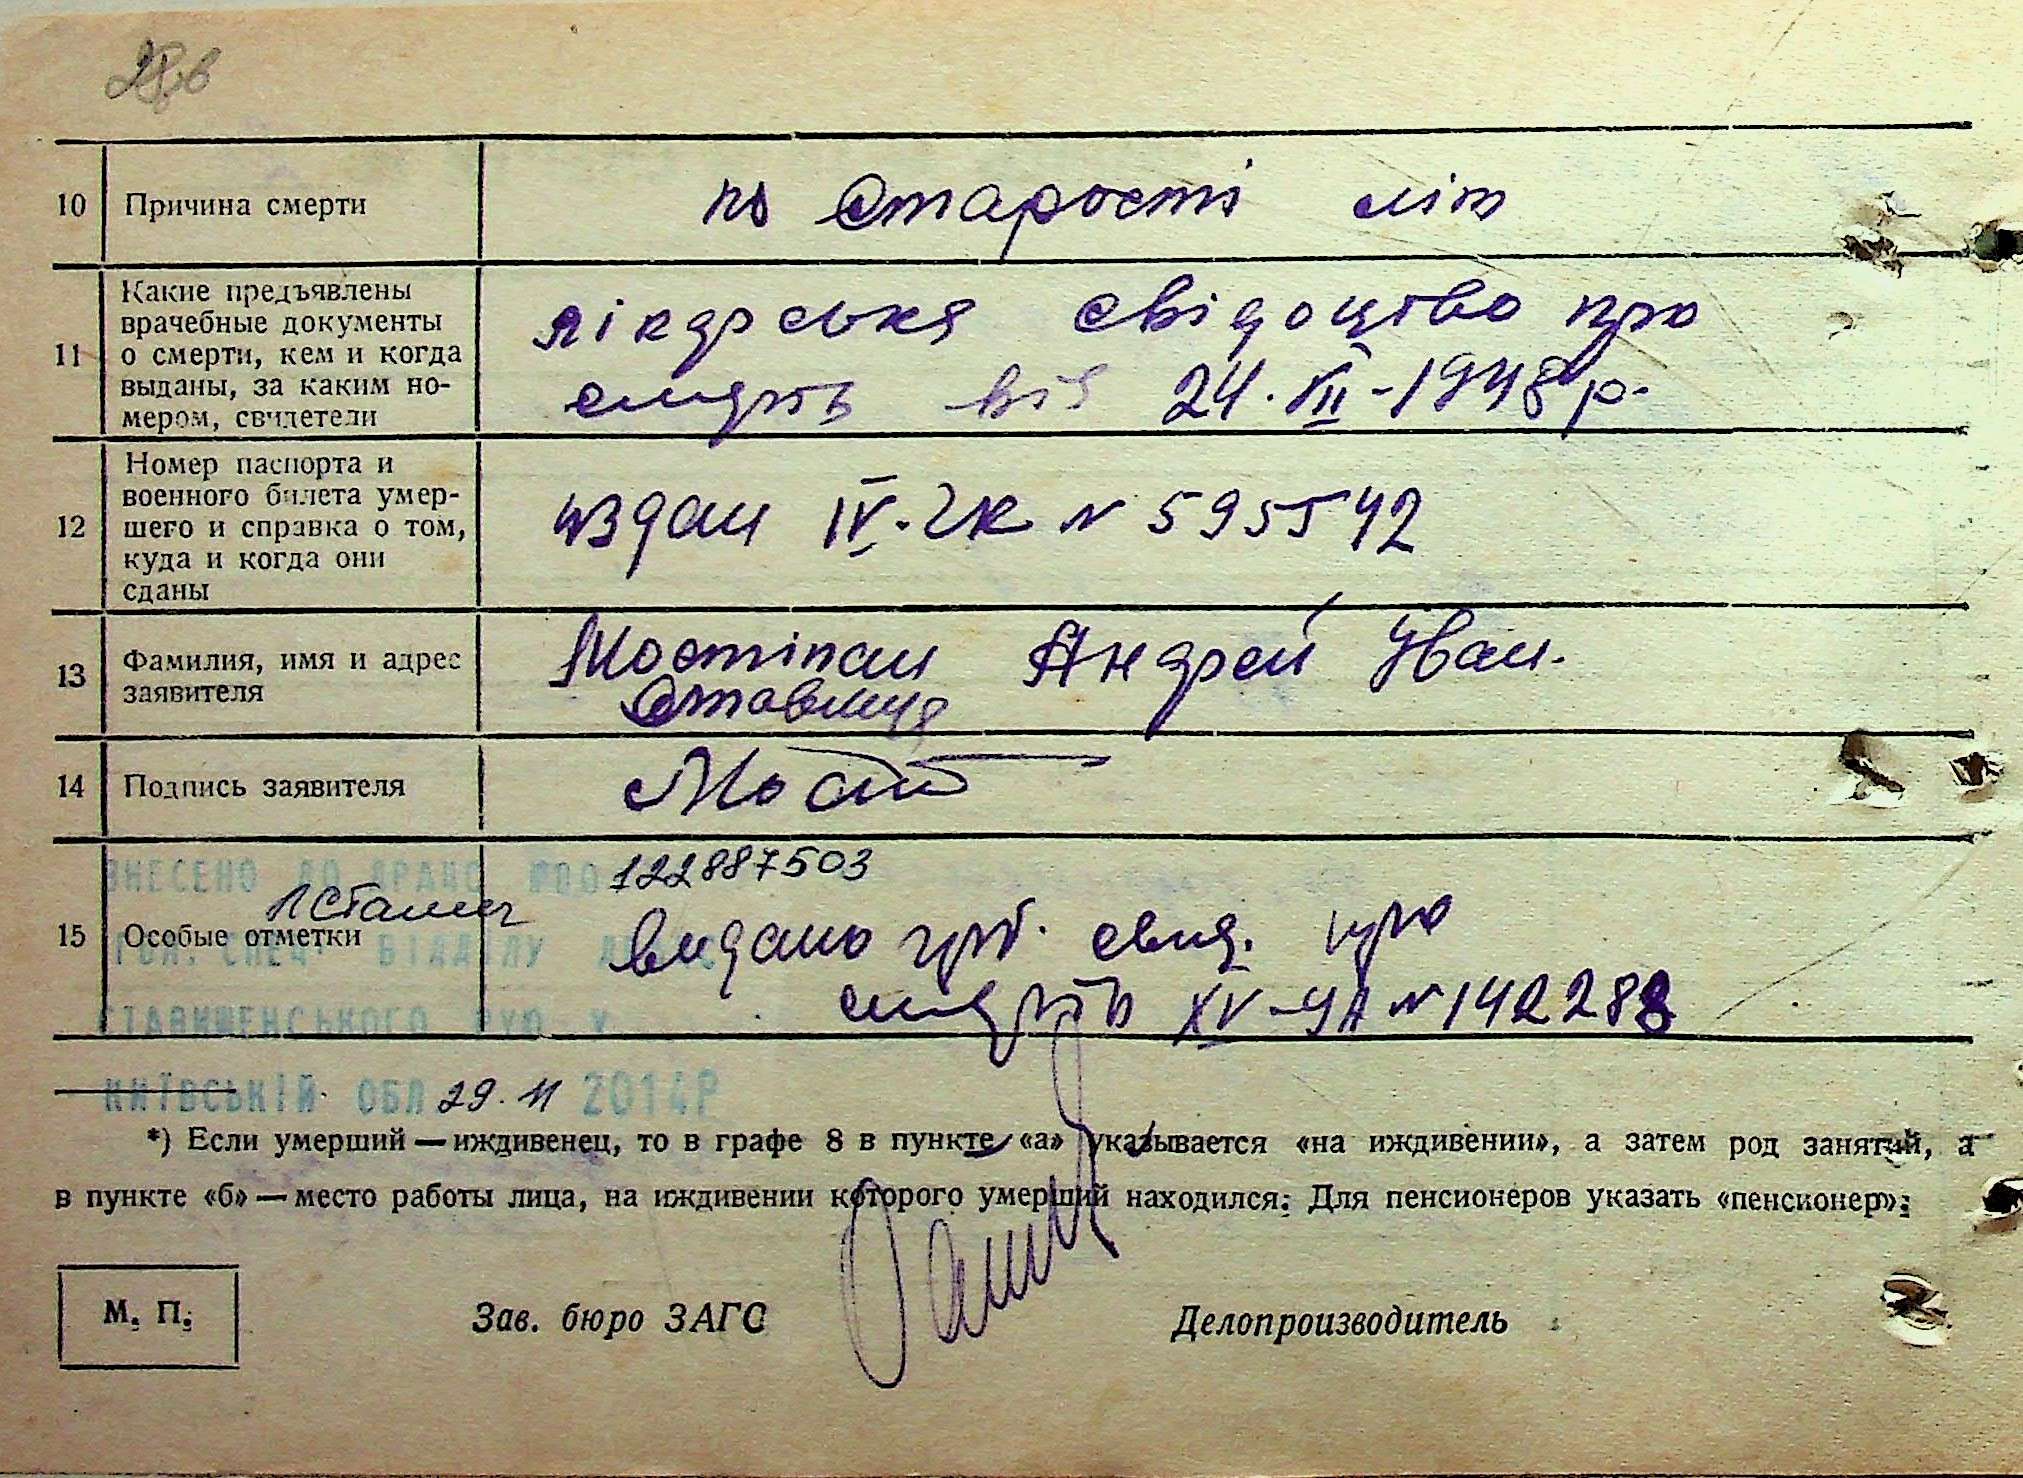 28в
10 Причина смерти по старості літ
11 Какие предъявлены
врачебные документы
о смерти, кем и когда
выданы, за каким но-
мером, свидетели
лікарське свідоцтво про
смерть від 24.VII-1948 р.
12 Номер паспорта и
военного билета умер-
шего и справка о том,
куда и когда они
сданы
IV-ЧК № 595542
13 Фамилия, имя и адрес
заявителя
Мостіпан Андрей Иван.
Ставище
14 Подпись заявителя
Мості
ВНЕСЕНО ДО ДРАЦС
122887503
15 Особые отметки
видано свид. про
смерть XV-УА № 142288
ВІДДІЛУ
СТАВИЩЕНСЬКОГО РУЮ У
КИЇВСЬКІЙ ОБЛ 29.11 2014Р
*) Если умерший — иждивенец, то в графе 8 в пункте «а» указывается «на иждивении», а затем род занятий, а
в пункте «б» — место работы лица, на иждивении которого умерший находился. Для пенсионеров указать «пенсионер».
М. П. Зав. бюро ЗАГС Делопроизводитель